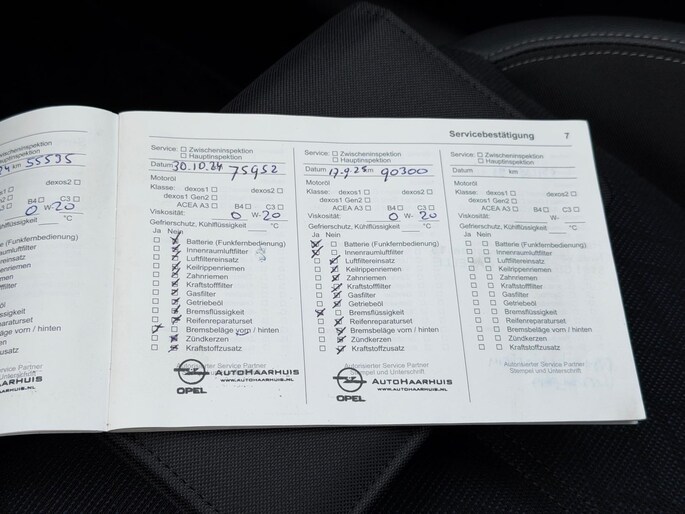 Servicebestätigung 7
km 55535
B4 C3
0 W-20
°C
e (Funkfernbedienung)
Service Partner
AARHUIS
Service: Zwischeninspektion
Hauptinspektion
Datum 30.10.24 75952
Motoröl
Klasse: dexos1 dexos2
dexos1 Gen2
ACEA A3 B4 C3
Viskosität: 0 W-20
Gefrierschutz, Kühlflüssigkeit °C
Ja Nein
Batterie (Funkfernbedienung)
Innenraumluftfilter
Luftfiltereinsatz
Keilrippenriemen
Zahnriemen
Kraftstofffilter
Gasfilter
Getriebeöl
Bremsflüssigkeit
Reifenreparaturset
Bremsbeläge vorn / hinten
Zündkerzen
Kraftstoffzusatz
Autorisierter Service Partner
Stempel und Unterschrift
OPEL AUTOHAARHUIS
WWW.AUTOHAARHUIS.NL
Service: Zwischeninspektion
Hauptinspektion
Datum 17.9.25 km 90300
Motoröl
Klasse: dexos1 dexos2
dexos1 Gen2
ACEA A3 B4 C3
Viskosität: 0 W-20
Gefrierschutz, Kühlflüssigkeit °C
Ja Nein
Batterie (Funkfernbedienung)
Innenraumluftfilter
Luftfiltereinsatz
Keilrippenriemen
Zahnriemen
Kraftstofffilter
Gasfilter
Getriebeöl
Bremsflüssigkeit
Reifenreparaturset
Bremsbeläge vorn / hinten
Zündkerzen
Kraftstoffzusatz
Autorisierter Service Partner
Stempel und Unterschrift
OPEL AUTOHAARHUIS
WWW.AUTOHAARHUIS.NL
Service: Zwischeninspektion
Hauptinspektion
Datum km
Motoröl
Klasse: dexos1 dexos2
dexos1 Gen2
ACEA A3 B4 C3
Viskosität: W-
Gefrierschutz, Kühlflüssigkeit °C
Ja Nein
Batterie (Funkfernbedienung)
Innenraumluftfilter
Luftfiltereinsatz
Keilrippenriemen
Zahnriemen
Kraftstofffilter
Gasfilter
Getriebeöl
Bremsflüssigkeit
Reifenreparaturset
Bremsbeläge vorn / hinten
Zündkerzen
Kraftstoffzusatz
Autorisierter Service Partner
Stempel und Unterschrift